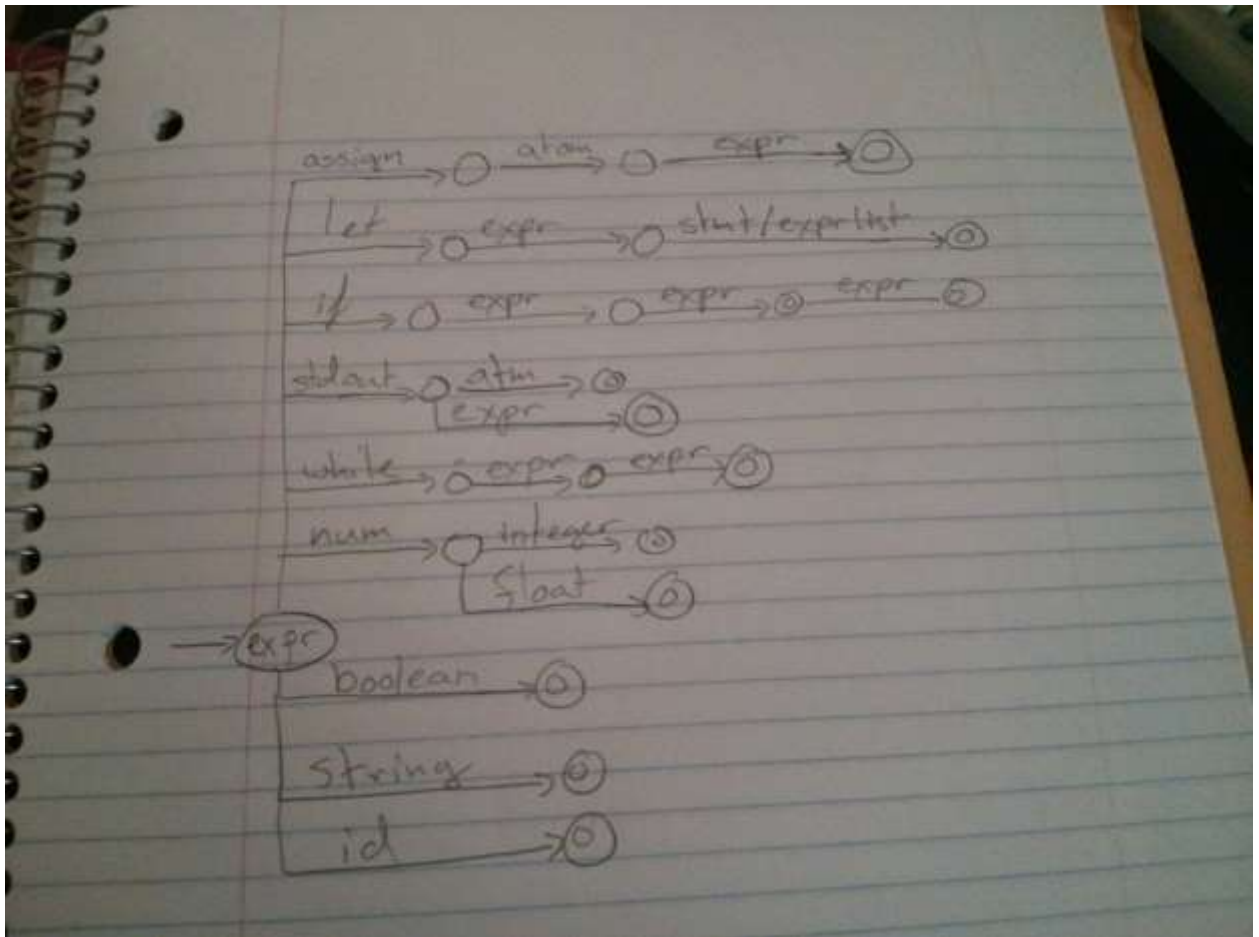 assign atom expr
let expr stmt/exprlist
if expr expr expr
stdout atm
expr
while expr expr
num integer
float
expr
boolean
string
id